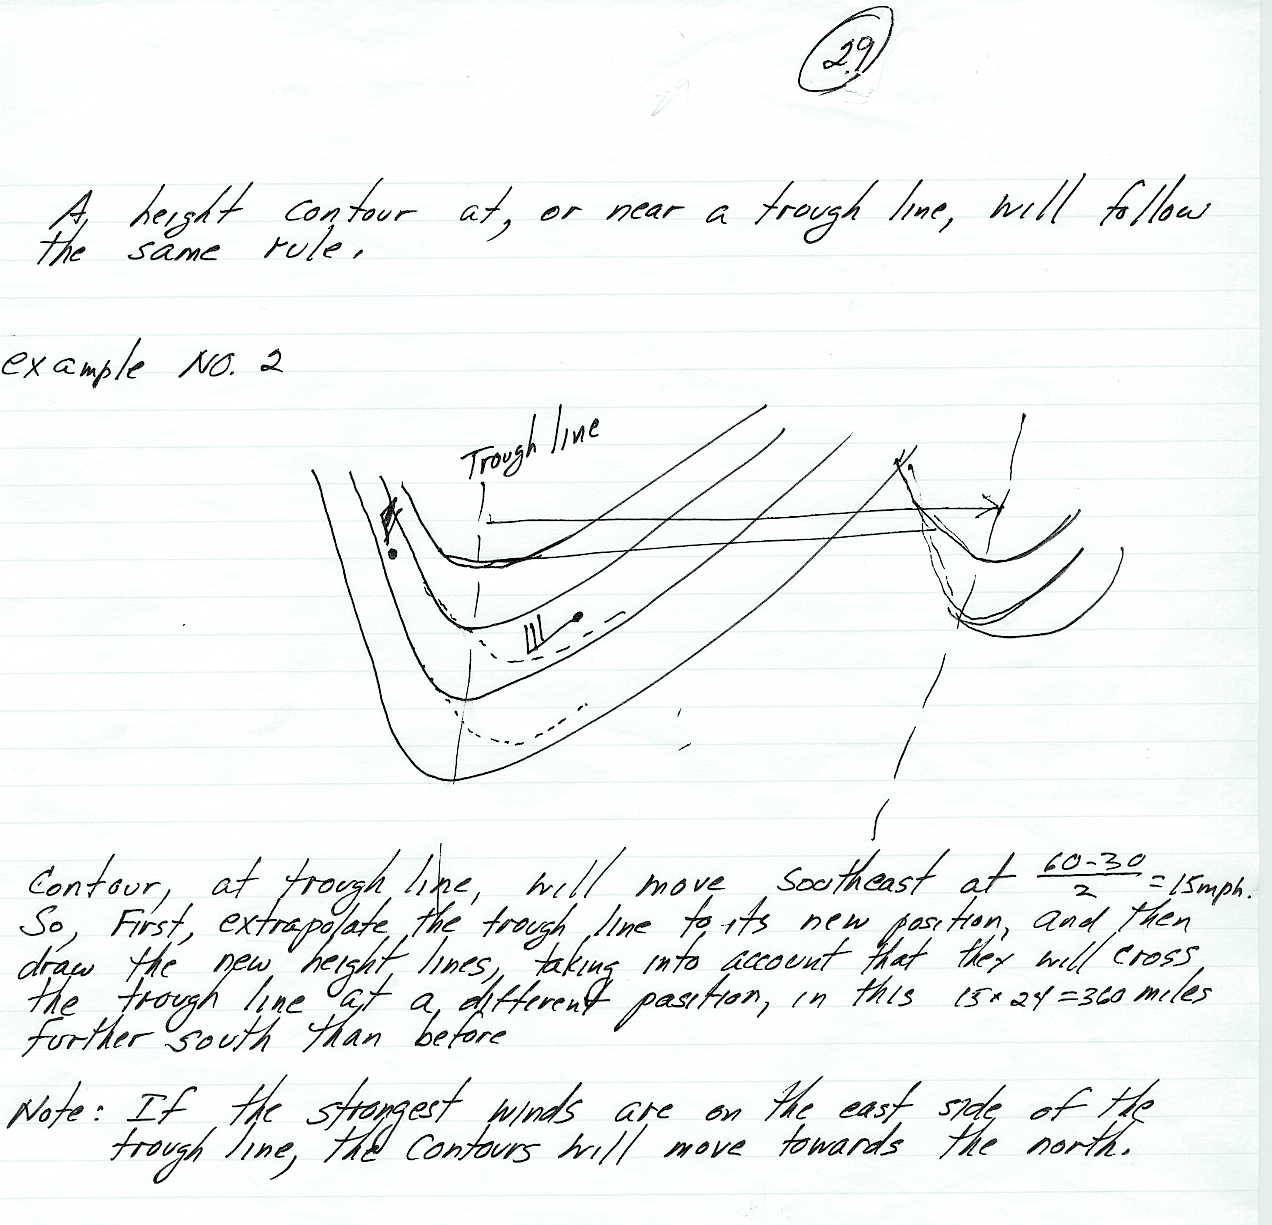 29
A height contour at, or near a trough line, will follow
the same rule.
example NO. 2
Trough line
Contour, at trough line, will move Southeast at 60-30/2 = 15mph.
So, First, extrapolate the trough line to its new position, and then
draw the new height lines, taking into account that they will cross
the trough line at a different position, in this 15x24=360 miles
further south than before
Note: If the strongest winds are on the east side of the
trough line, the contours will move towards the north.